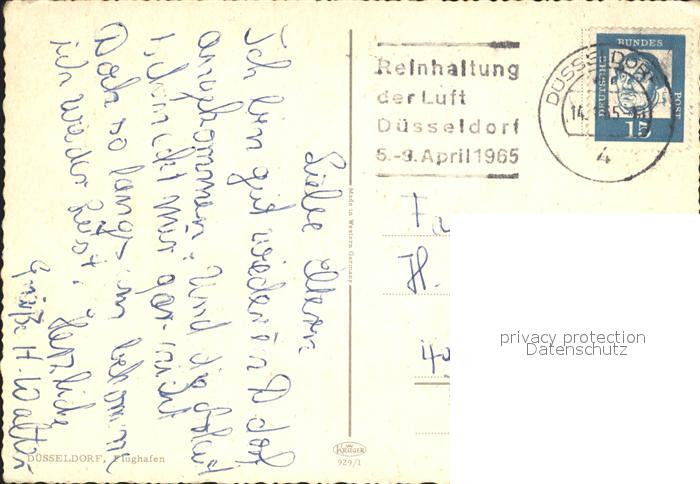 Liebe Eltern
Ich bin gut wieder in D dorf
angekommen. Und die Arbeit
schmeckt mir gar nicht
Doch so langsam bekomm
ich wieder Lust. Herzliche
Grüße H. Walter
DÜSSELDORF, Flughafen
Made in Western Germany
KRÜGER
929/1
Reinhaltung
der Luft
Düsseldorf
5.-9. April 1965
DÜSSELDORF
14.
4
DEUTSCHE
BUNDES
POST
15
Fa
H.
40
privacy protection
Datenschutz